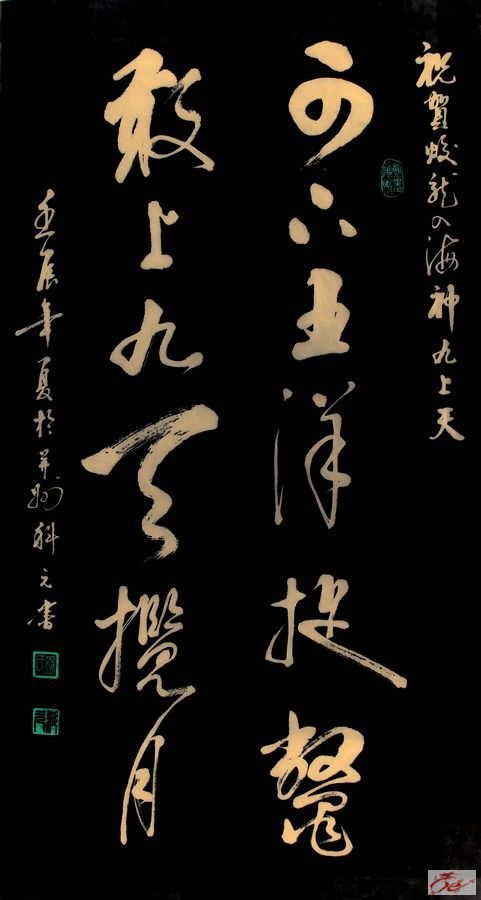 祝賀蛟龍入海神九上天
可下五洋捉鱉
敢上九天攬月
壬辰年夏於并州科元書